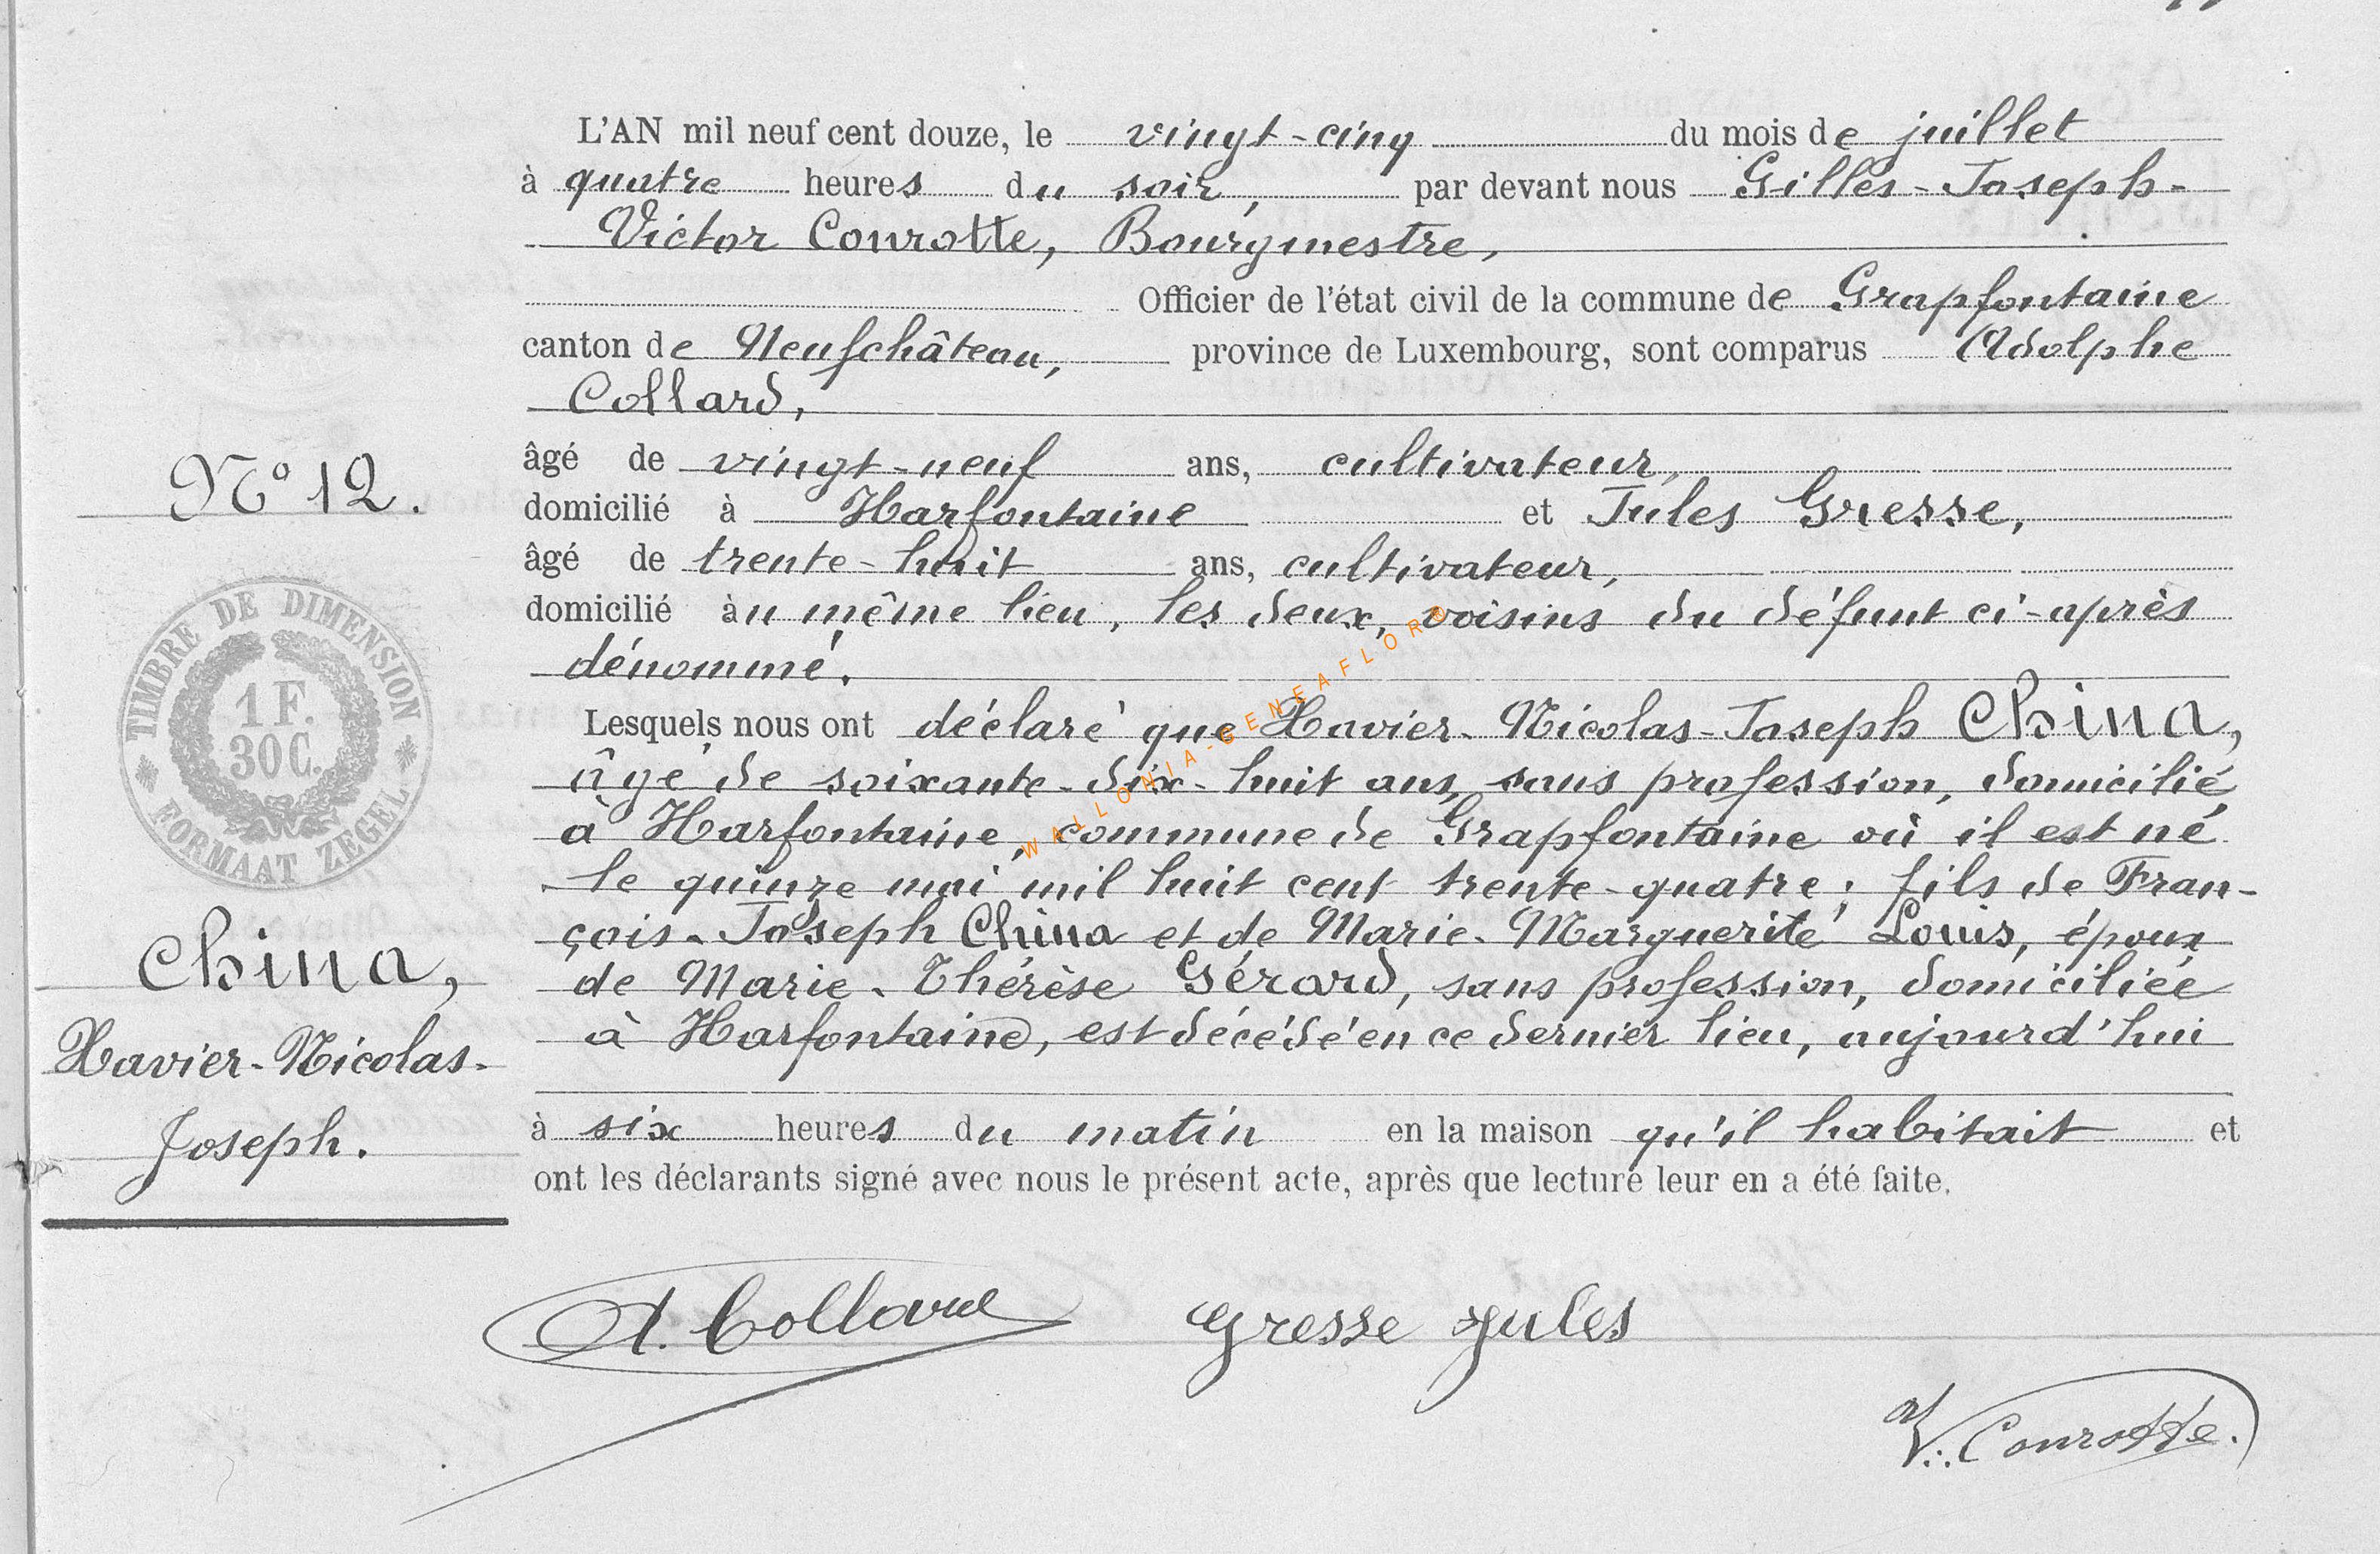 L'AN mil neuf cent douze, le vingt-cinq du mois de juillet
à quatre heures du soir, par devant nous Gilles-Joseph-
Victor Conrotte, Bourgmestre,
Officier de l'état civil de la commune de Grapfontaine
canton de Neufchâteau, province de Luxembourg, sont comparus Adolphe
Collard,
âgé de vingt-neuf ans, cultivateur,
domicilié à Harfontaine et Jules Gresse,
âgé de trente-huit ans, cultivateur,
domicilié au même lieu, les deux, voisins du défunt ci-après
dénommé.
Lesquels nous ont déclaré que Xavier-Nicolas-Joseph China,
âgé de soixante-dix-huit ans, sans profession, domicilié
à Harfontaine, commune de Grapfontaine où il est né
le quinze mai mil huit cent trente-quatre; fils de Fran-
çois-Joseph China et de Marie-Marguerite Louis, époux
de Marie-Thérèse Gérard, sans profession, domiciliée
à Harfontaine, est décédé en ce dernier lieu, aujourd'hui
à six heures du matin en la maison qu'il habitait et
ont les déclarants signé avec nous le présent acte, après que lecture leur en a été faite.
N° 12.
TIMBRE DE DIMENSION
1 F.
30 C.
FORMAAT ZEGEL
China,
Xavier-Nicolas-
Joseph.
A. Collard
Gresse Jules
V. Conrotte.
WALLONIA-GENEAFLOR